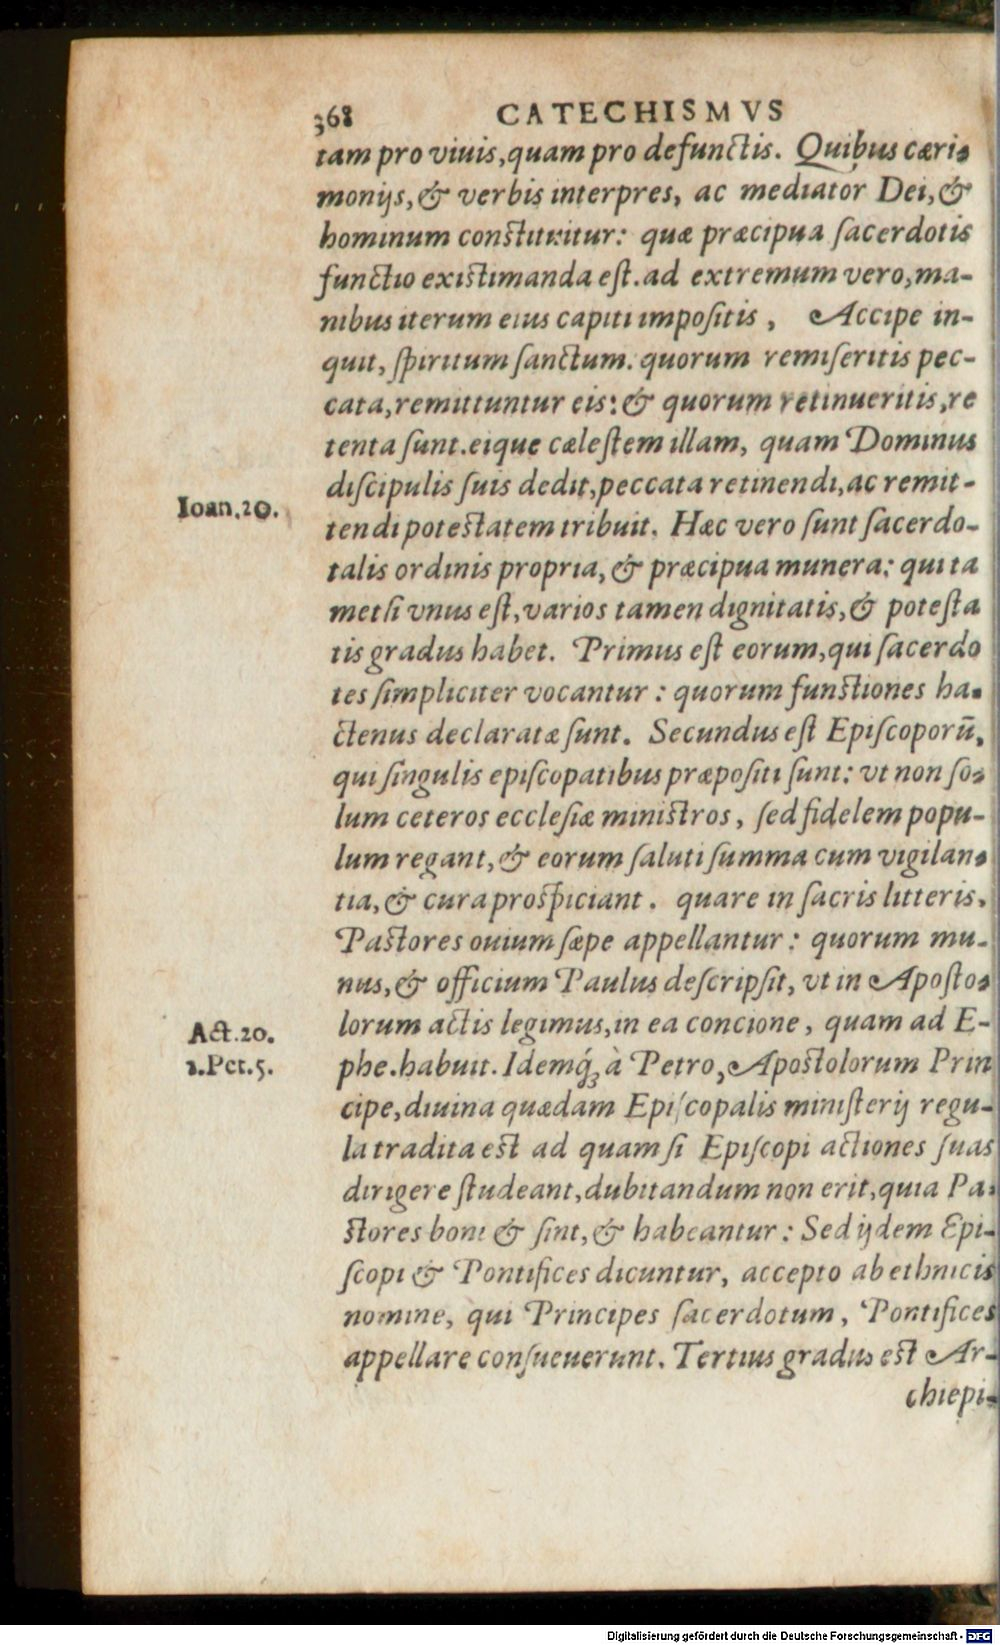 368 CATECHISMVS
tam pro viuis, quam pro defunctis. Quibus cæri-
monijs, & verbis interpres, ac mediator Dei, &
hominum constituitur: quæ præcipua sacerdotis
functio existimanda est. ad extremum vero, ma-
nibus iterum eius capiti impositis, Accipe in-
quit, spiritum sanctum. quorum remiseritis pec-
cata, remittuntur eis: & quorum retinueritis, re
tenta sunt. eique cælestem illam, quam Dominus
discipulis suis dedit, peccata retinendi, ac remit-
Ioan. 20.
tendi potestatem tribuit. Hæc vero sunt sacerdo-
talis ordinis propria, & præcipua munera: qui ta
metsi vnus est, varios tamen dignitatis, & potesta
tis gradus habet. Primus est eorum, qui sacerdo
tes simpliciter vocantur: quorum functiones ha-
ctenus declaratæ sunt. Secundus est Episcoporū,
qui singulis episcopatibus præpositi sunt: vt non so-
lum ceteros ecclesiæ ministros, sed fidelem popu-
lum regant, & eorum saluti summa cum vigilan-
tia, & cura prospiciant. quare in sacris litteris,
Pastores ouium sæpe appellantur: quorum mu-
nus, & officium Paulus descripsit, vt in Aposto-
Act. 20.
lorum actis legimus, in ea concione, quam ad E-
1. Pet. 5.
phe. habuit. Idemq́; à Petro, Apostolorum Prin
cipe, diuina quædam Episcopalis ministerij regu-
la tradita est ad quam si Episcopi actiones suas
dirigere studeant, dubitandum non erit, quia Pa-
stores boni & sint, & habeantur: Sed ijdem Epi-
scopi & Pontifices dicuntur, accepto ab ethnicis
nomine, qui Principes sacerdotum, Pontifices
appellare consueuerunt. Tertius gradus est Ar-
chiepi-
Digitalisierung gefördert durch die Deutsche Forschungsgemeinschaft - DFG